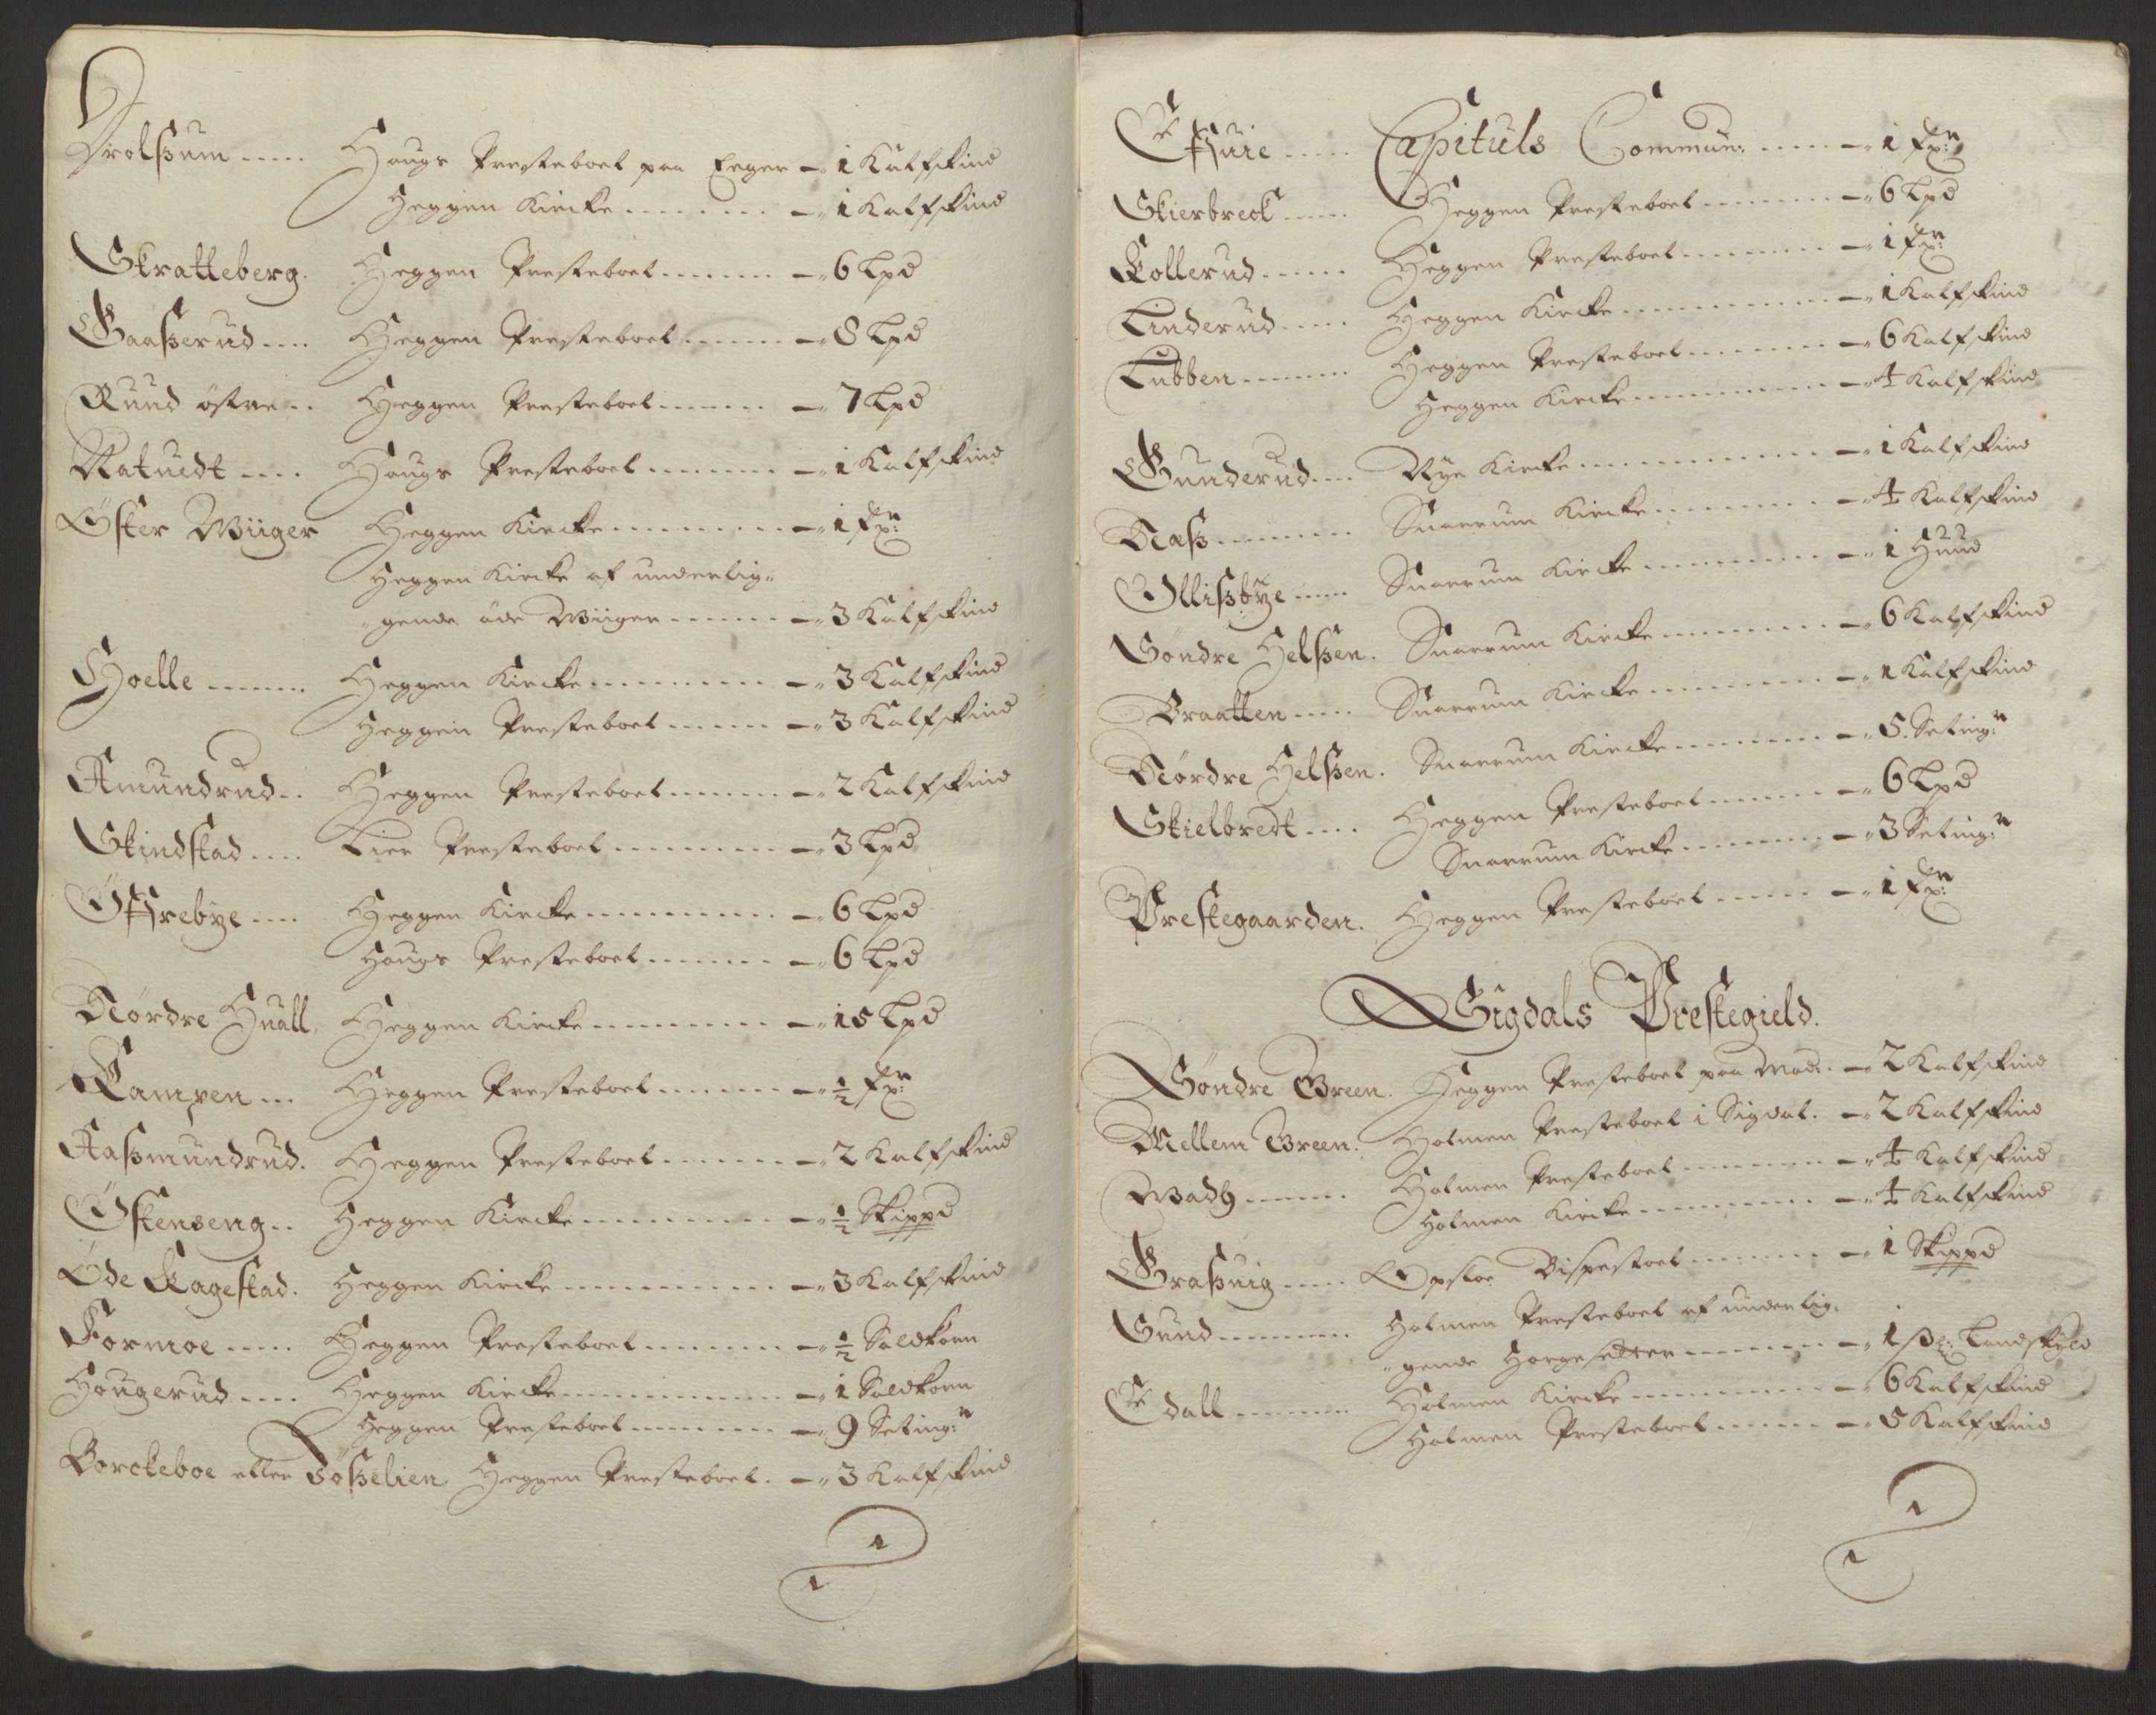 Drolsßum ..... Hougs Presteboel paa Eeger – 1 Kalfskind
Heggen Kircke ........ – 1 Kalfskind
Skratteberg. Heggen Presteboel ....... – 6 Lpd
Gaaßerud .... Heggen Presteboel ....... – 8 Lpd
Ruud östre .. Heggen Presteboel ....... – 7 Lpd
Natuedt .... Hougs Presteboel ....... – 1 Kalfskind
Öster Wiiger Heggen Kircke ......... – 1 fx:n
Heggen Kircke af underlig„
„gende öde Wiiger ...... – 3 Kalfskind
Hoelle ....... Heggen Kircke ......... – 3 Kalfskind
Heggen Presteboel ...... – 3 Kalfskind
Amundrud .. Heggen Presteboel ...... – 2 Kalfskind
Skindstad .... Lier Presteboel ........ – 3 Lpd
Öffrebye .... Heggen Kircke ......... – 6 Lpd
Hougs Presteboel ....... – 6 Lpd
Nordre Huall. Heggen Kircke ......... – 15 Lpd
Kampen ... Heggen Presteboel ...... – ½ fx:n
Aaßmundrud. Heggen Presteboel ....... – 2 Kalfskind
Östenseng .. Heggen Kircke .......... – ½ Skippd
Öde Kagestad. Heggen Kircke .......... – 3 Kalfskind
Formoe ..... Heggen Presteboel ....... – ½ Soldkorn
Hougerud .... Heggen Kircke .......... – 1 Soldkorn
Heggen Presteboel ....... – 9 Seting:n
Borckeboe eller Lößelien Heggen Presteboel. – 3 Kalfskind
Effuie ..... Capituls Commun: ..... – 1 fx:n
Skierbreck ..... Heggen Presteboel ....... – 6 Lpd
Kollerud ...... Heggen Presteboel ........ – 1 fx:n
Linderud ..... Heggen Kircke .......... – 1 Kalfskind
Lubben ....... Heggen Presteboel ........ – 6 Kalfskind
Heggen Kircke .......... – 4 Kalfskind
Gunderud .... Nye Kircke ............ – 1 Kalfskind
Næß ......... Snarrum Kircke ........ – 4 Kalfskind
Ollißbÿe ..... Snarrum Kircke ......... – 1 Huud
Söndre Helßen. Snarrum Kircke ........ – 6 Kalfskind
Braatten ..... Snarrum Kircke ......... – 1 Kalfskind
Nordre Helßen. Snarrum Kircke ....... – 5. Seting:n
Skielbredt .... Heggen Presteboel ...... – 6 Lpd
Snarrum Kircke ....... – 3 Seting:n
Prestegaarden. Heggen Presteboel ..... – 1 fx:n
Sigdals Prestegield.
Söndre Green. Heggen Presteboel paa Mod:. – 2 Kalfskind
Mellem Green. Holmen Presteboel i Sigdal. – 2 Kalfskind
Wadh ...... Holmen Presteboel ....... – 4 Kalfskind
Holmen Kircke ........ – 4 Kalfskind
Graßuig ..... Opsloe Bispestoel ...... – 1 Skippd
Sund ........ Holmen Presteboel af underlig:
„gende Horgesetter ....... – 1 ß Landskyld
Edall ....... Holmen Kircke ......... – 6 Kalfskind
Holmen Presteboel ..... – 5 Kalfskind